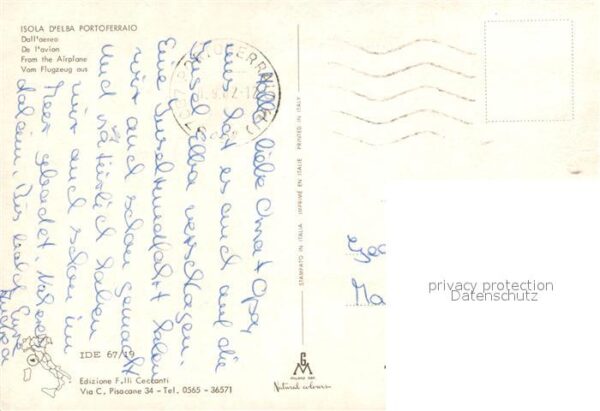 ISOLA D'ELBA PORTOFERRAIO
Dall'aereo
De l'avion
From the Airplane
Vom Flugzeug aus
Hallo liebe Oma + Opa,
uns hat es auch auf die
Insel Elba verschlagen.
Eine Inselrundfahrt haben
wir auch schon gemacht
und natürlich haben
wir auch schon im
Meer gebadet.
daheim. Bis bald Eure
Andrea
PORTOFERRAIO
STAMPATO IN ITALIA IMPRIMÉ EN ITALIE PRINTED IN ITALY
privacy protection
Datenschutz
IDE 67/19
Edizione F.lli Ceccanti
Via C. Pisacane 34 - Tel. 0565 - 36571
Natural colours